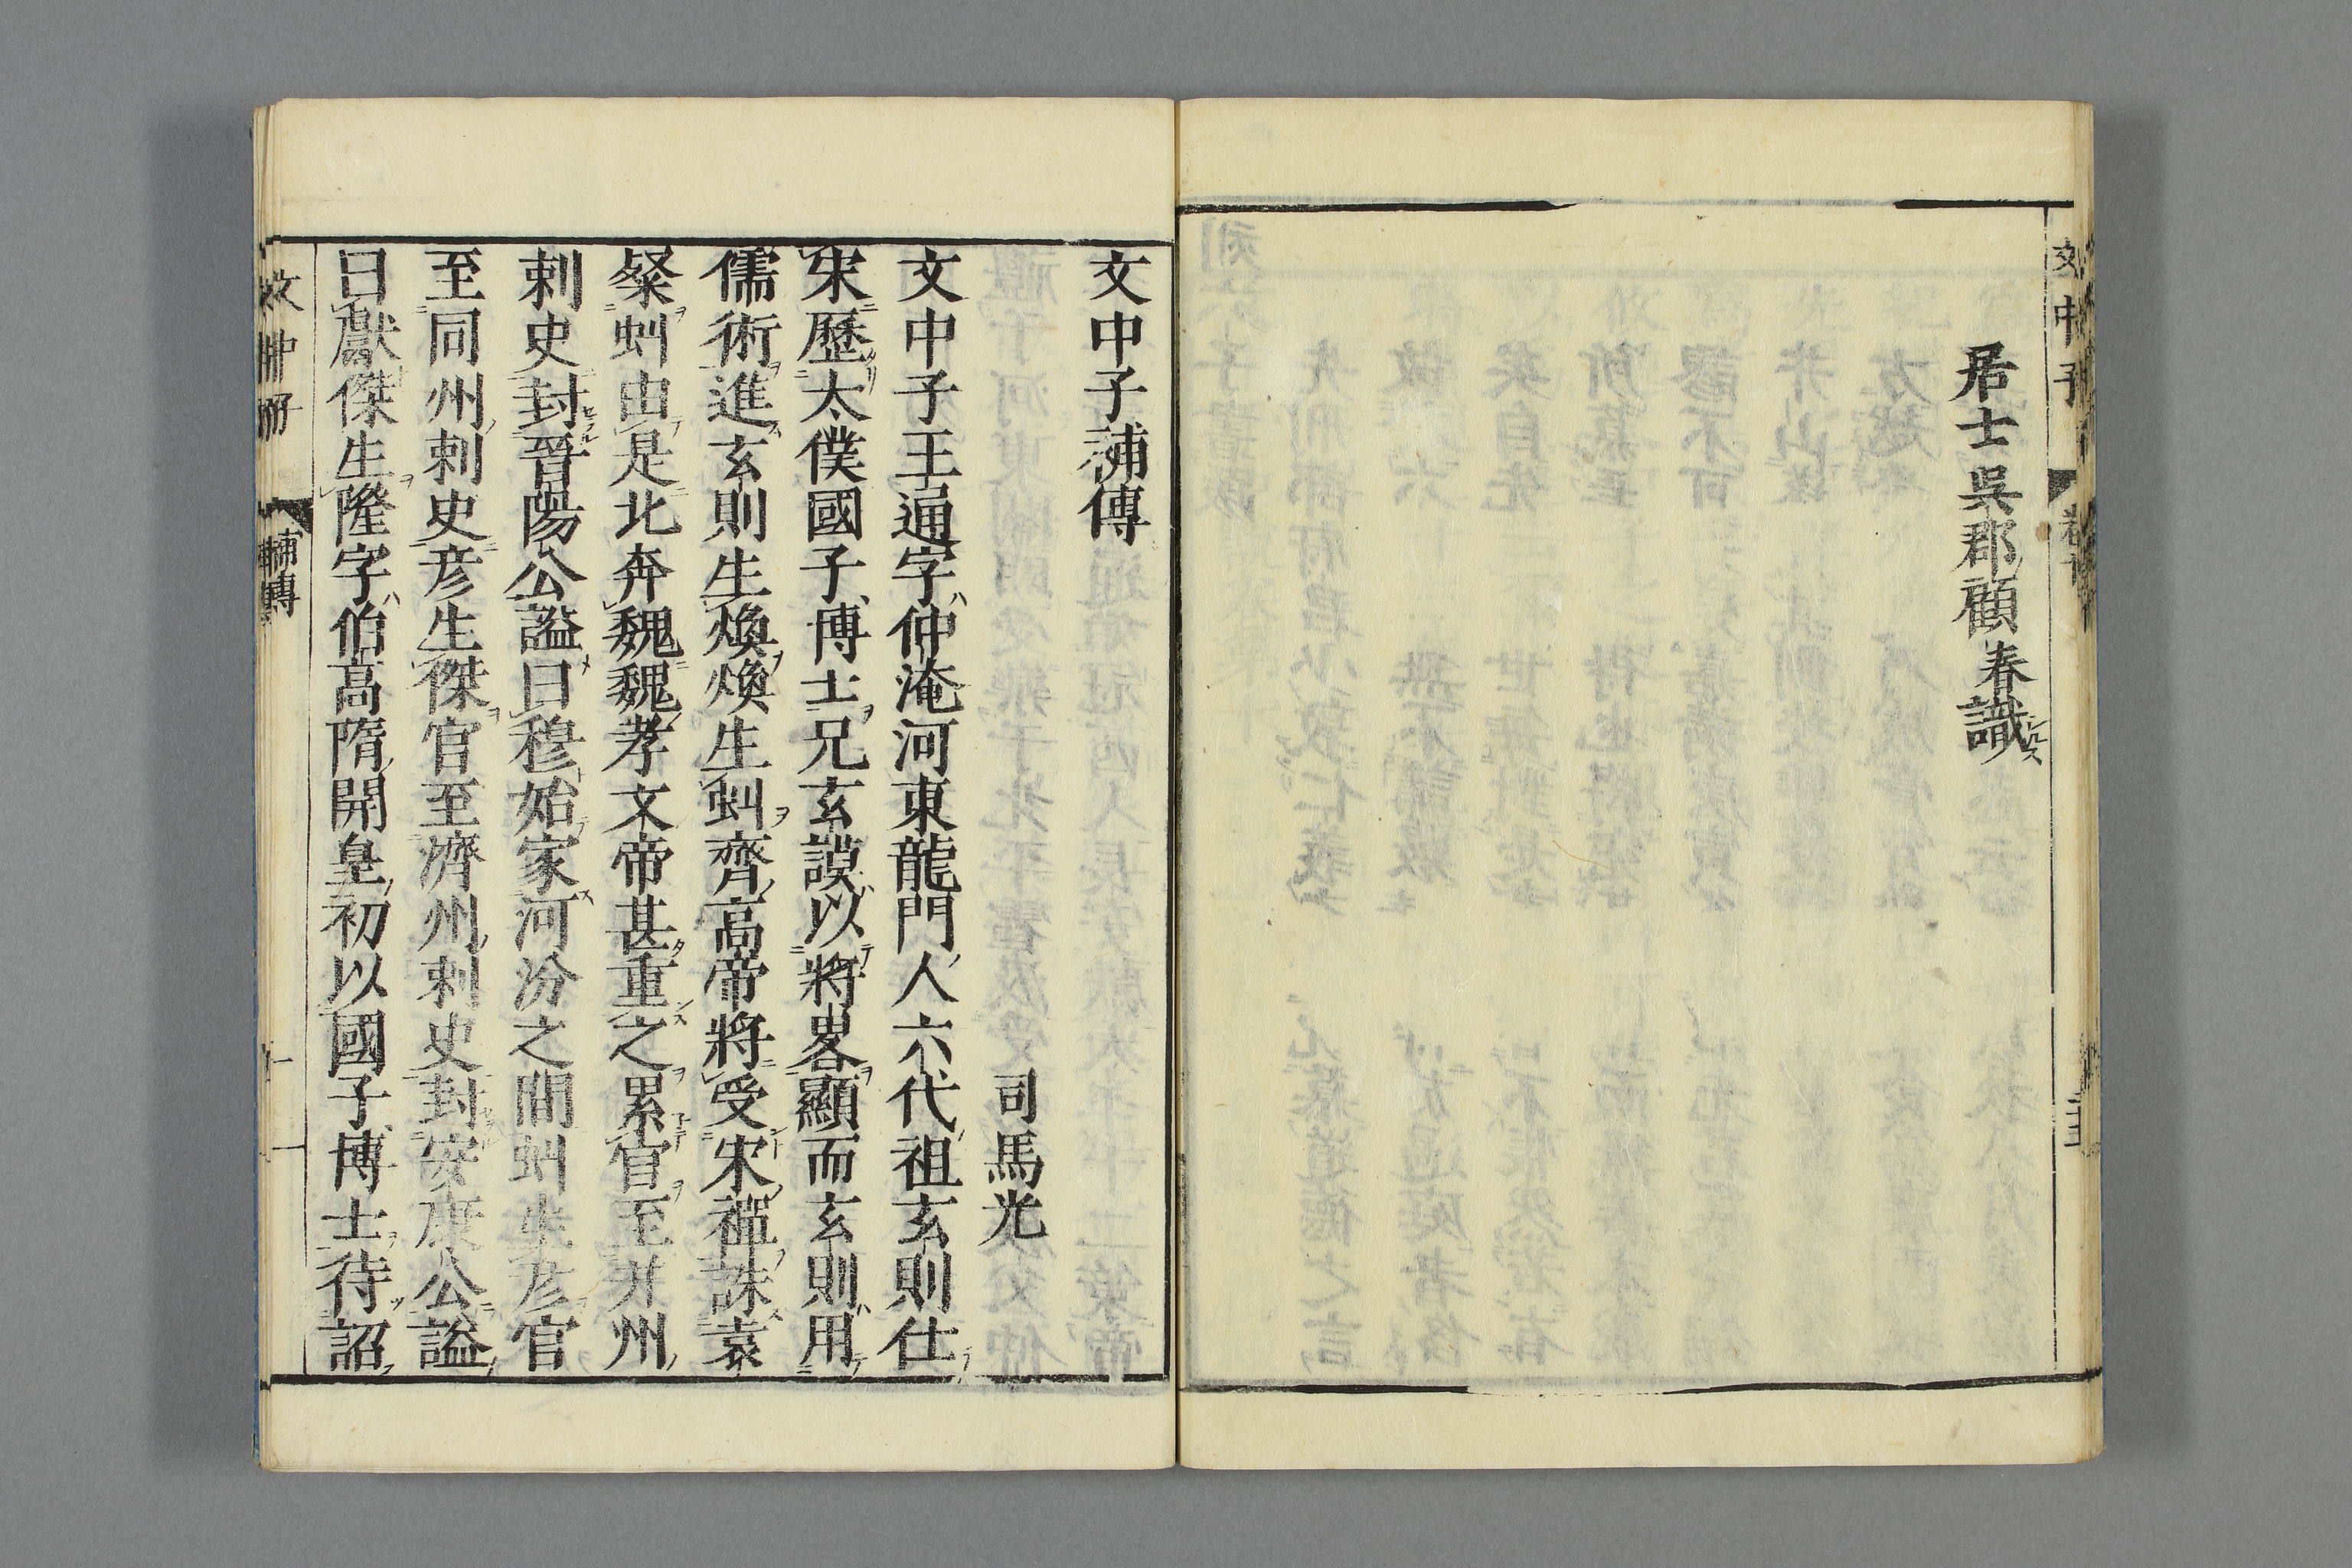 居士吳郡顧春識
文中子補傳
司馬光
文中子王通字仲淹河東龍門人六代祖玄則仕
宋歷太僕國子博士兄玄謨以將畧顯而玄則用
儒術進玄則生煥煥生虯齊高帝將受宋禪誅袁
粲虯由是北奔魏魏孝文帝甚重之累官至并州
刺史封晉陽公謚曰穆始家河汾之間虯生彦官
至同州刺史彦生傑官至濟州刺史封安康公謚
曰獻傑生隆字伯高隋開皇初以國子博士待詔
文中子
補傳
一